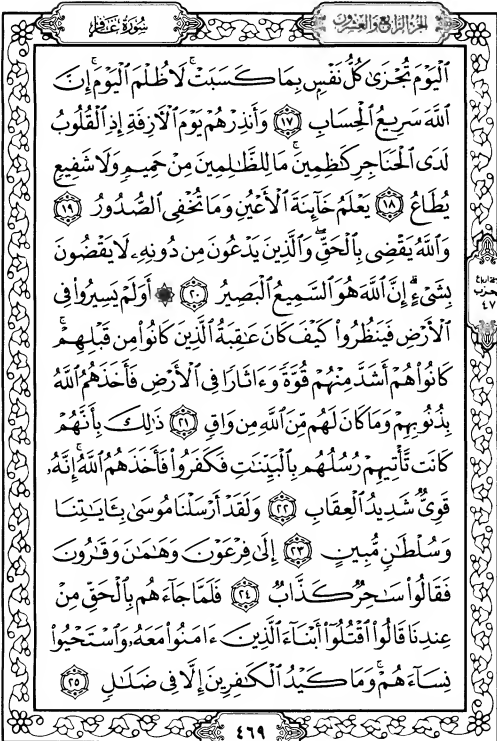 الجزء الرابع والعشرون
سورة غافر
ٱلْيَوْمَ تُجْزَىٰ كُلُّ نَفْسٍۭ بِمَا كَسَبَتْ ۚ لَا ظُلْمَ ٱلْيَوْمَ ۚ إِنَّ
ٱللَّهَ سَرِيعُ ٱلْحِسَابِ ١٧ وَأَنذِرْهُمْ يَوْمَ ٱلْءَازِفَةِ إِذِ ٱلْقُلُوبُ
لَدَى ٱلْحَنَاجِرِ كَٰظِمِينَ ۚ مَا لِلظَّٰلِمِينَ مِنْ حَمِيمٍ وَلَا شَفِيعٍ
يُطَاعُ ١٨ يَعْلَمُ خَآئِنَةَ ٱلْأَعْيُنِ وَمَا تُخْفِى ٱلصُّدُورُ ١٩
وَٱللَّهُ يَقْضِى بِٱلْحَقِّ ۖ وَٱلَّذِينَ يَدْعُونَ مِن دُونِهِۦ لَا يَقْضُونَ
بِشَىْءٍ ۗ إِنَّ ٱللَّهَ هُوَ ٱلسَّمِيعُ ٱلْبَصِيرُ ٢٠ ۞ أَوَلَمْ يَسِيرُوا۟ فِى
ٱلْأَرْضِ فَيَنظُرُوا۟ كَيْفَ كَانَ عَٰقِبَةُ ٱلَّذِينَ كَانُوا۟ مِن قَبْلِهِمْ ۚ
كَانُوا۟ هُمْ أَشَدَّ مِنْهُمْ قُوَّةً وَءَاثَارًا فِى ٱلْأَرْضِ فَأَخَذَهُمُ ٱللَّهُ
بِذُنُوبِهِمْ وَمَا كَانَ لَهُم مِّنَ ٱللَّهِ مِن وَاقٍ ٢١ ذَٰلِكَ بِأَنَّهُمْ
كَانَت تَّأْتِيهِمْ رُسُلُهُم بِٱلْبَيِّنَٰتِ فَكَفَرُوا۟ فَأَخَذَهُمُ ٱللَّهُ ۚ إِنَّهُۥ
قَوِىٌّ شَدِيدُ ٱلْعِقَابِ ٢٢ وَلَقَدْ أَرْسَلْنَا مُوسَىٰ بِـَٔايَٰتِنَا
وَسُلْطَٰنٍ مُّبِينٍ ٢٣ إِلَىٰ فِرْعَوْنَ وَهَٰمَٰنَ وَقَٰرُونَ
فَقَالُوا۟ سَٰحِرٌ كَذَّابٌ ٢٤ فَلَمَّا جَآءَهُم بِٱلْحَقِّ مِنْ
عِندِنَا قَالُوا۟ ٱقْتُلُوٓا۟ أَبْنَآءَ ٱلَّذِينَ ءَامَنُوا۟ مَعَهُۥ وَٱسْتَحْيُوا۟
نِسَآءَهُمْ ۚ وَمَا كَيْدُ ٱلْكَٰفِرِينَ إِلَّا فِى ضَلَٰلٍ ٢٥
حزب
٤٧
٤٦٩